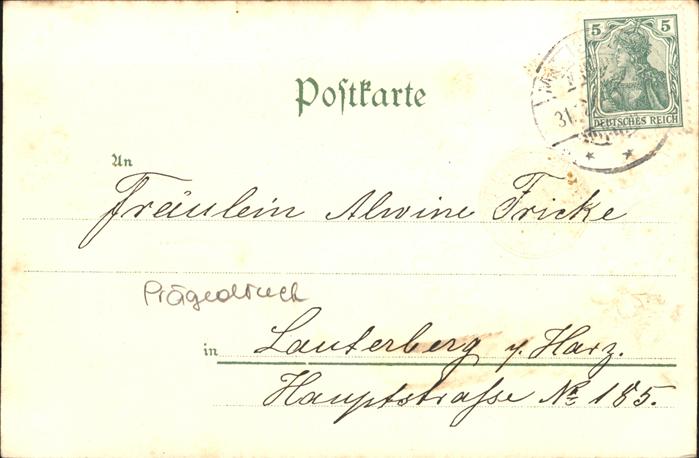 5 5
DEUTSCHES REICH
31.
Postkarte
An
Fräulein Alwine Fricke
Prägedruck
in Lauterberg y. Harz.
Hauptstrasse No 185.